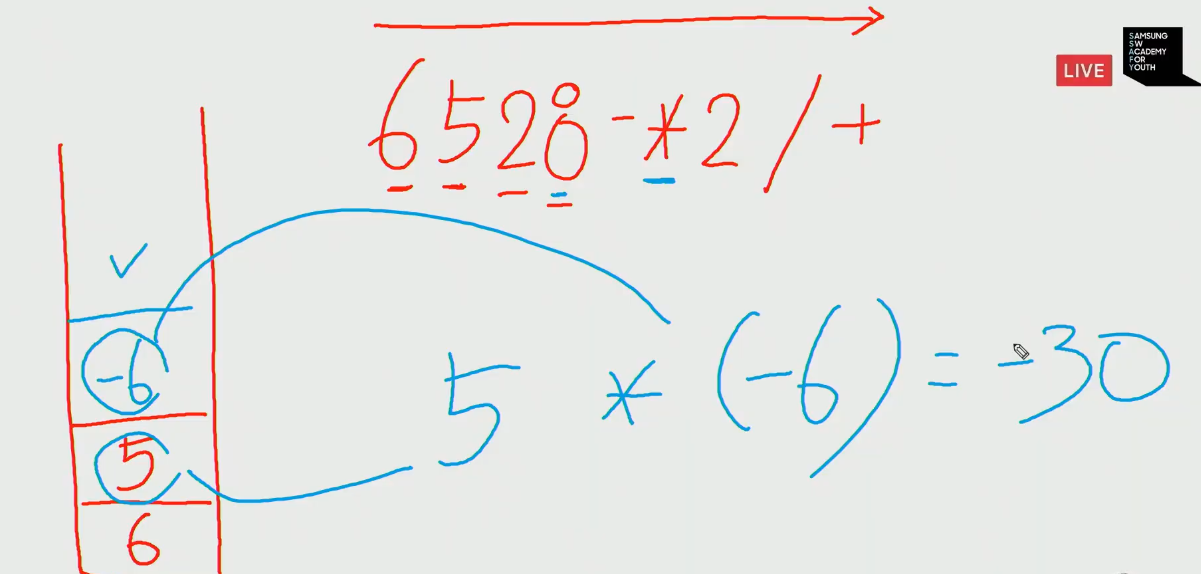 SAMSUNG
SW
ACADEMY
FOR
YOUTH
LIVE
6528-*2/+
-6
5
6
5 * (-6) = -30